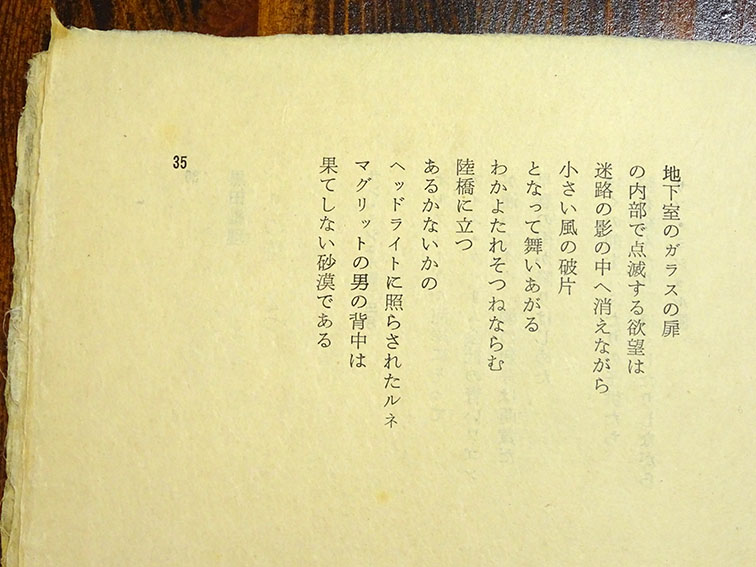 地下室のガラスの扉
の内部で点滅する欲望は
迷路の影の中へ消えながら
小さい風の破片
となって舞いあがる
わかよたれそつねならむ
陸橋に立つ
あるかないかの
ヘッドライトに照らされたルネ
マグリットの男の背中は
果てしない砂漠である
35